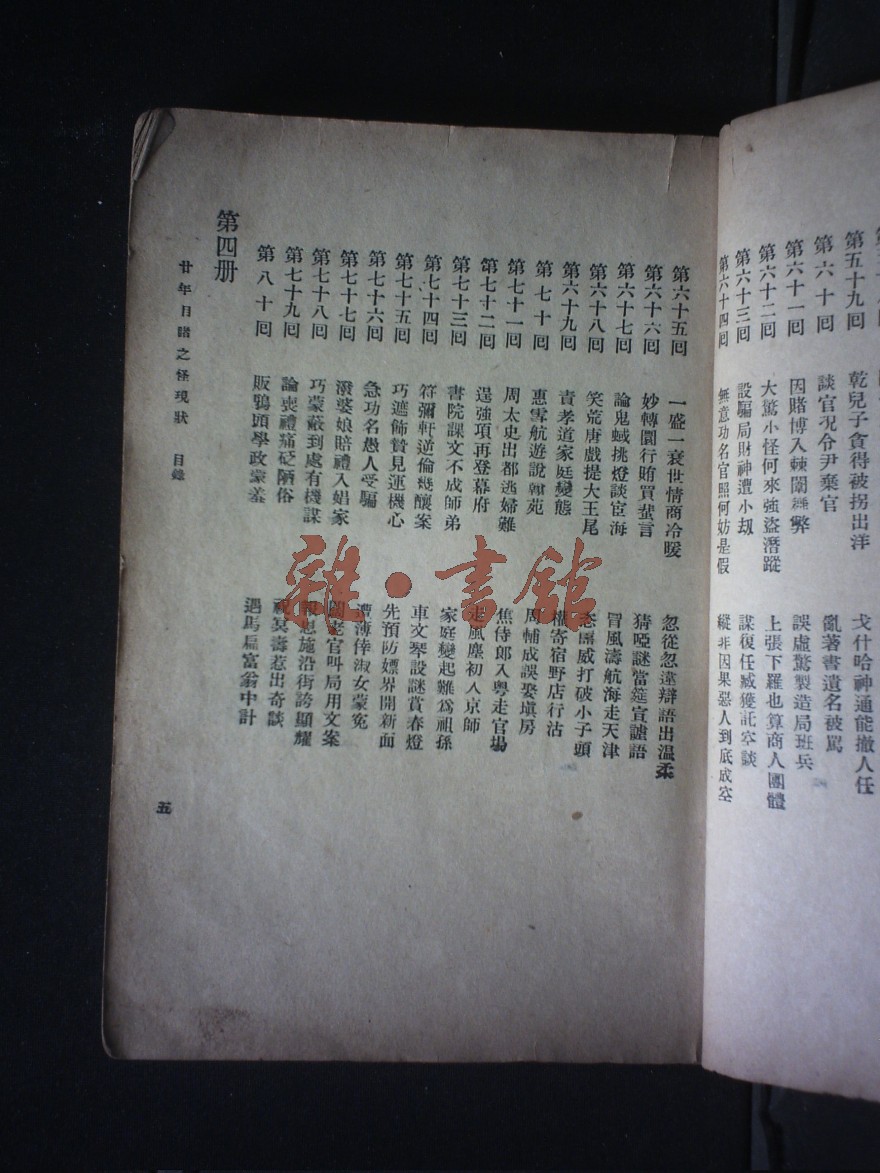 第五十九囘 乾兒子貪得被拐出洋 戈什哈神通能撤人任
第六十囘 談官況令尹棄官 亂著書遺名被罵
第六十一囘 因賭博入棘闈舞弊 誤虛驚製造局班兵
第六十二囘 大驚小怪何來強盜潛蹤 上張下羅也算商人團體
第六十三囘 設騙局財神遭小刼 謀復任臧獲託空談
第六十四囘 無意功名官照何妨是假 縱非因果惡人到底成空
第六十五囘 一盛一衰世情商冷暖 忽從忽違辯語出温柔
第六十六囘 妙轉圜行賄買蜚言 猜啞謎當筵宣謔語
第六十七囘 論鬼蜮挑燈談宦海 冒風濤航海走天津
第六十八囘 笑荒唐戲提大王尾 恣囂威打破小子頭
第六十九囘 責孝道家庭變態 權寄宿野店行沽
第七十囘 惠雪航遊說翰苑 周輔成誤娶塡房
第七十一囘 周太史出都逃婦難 焦侍郎入粤走官場
第七十二囘 逞強項再登幕府 走風塵初入京師
第七十三囘 書院課文不成師弟 家庭變起難爲祖孫
第七十四囘 符彌軒逆倫幾釀案 車文琴設謎賞春燈
第七十五囘 巧遮飾贄見運機心 先預防嫖界開新面
第七十六囘 急功名愚人受騙 遭薄倖淑女蒙寃
第七十七囘 潑婆娘賠禮入娼家 闊老官叫局用文案
第七十八囘 巧蒙蔽到處有機謀 報恩施沿街誇顯耀
第七十九囘 論喪禮痛砭陋俗 祝冥壽惹出奇談
第八十囘 販鴉頭學政蒙羞 遇馬扁富翁中計
第四册
廿年目睹之怪現狀 目錄
五
雜·書館